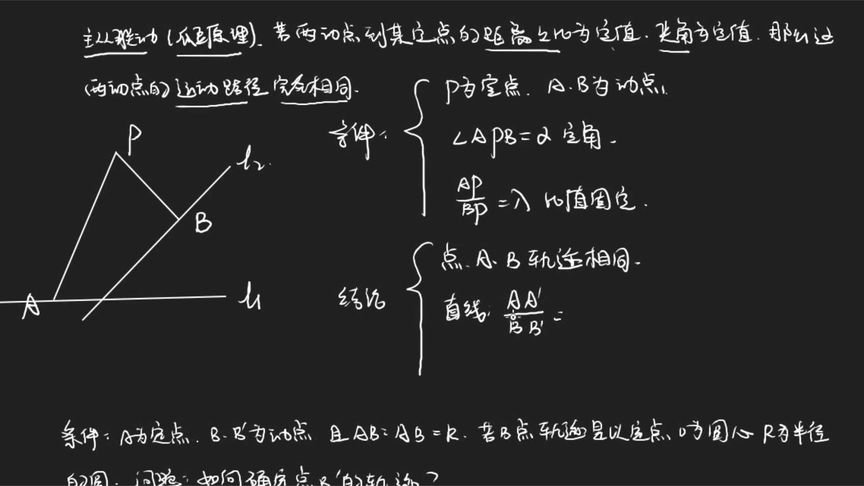 主从联动(瓜豆原理). 若两动点到某定点的距离之比为定值. 夹角为定值. 那么这
两动点的运动路径完全相同.
P
l₂
B
A
l₁
条件:
P为定点. A.B为动点.
∠APB=α 定角.
AP/BP=λ 比值固定.
结论
点.A.B轨迹相同.
直线: AA'/BB' =
条件: A为定点. B.B'为动点 且AB:AB=k. 若B点轨迹是以定点O为圆心 R为半径
的圆. 问题: 如何确定点B'的轨迹?